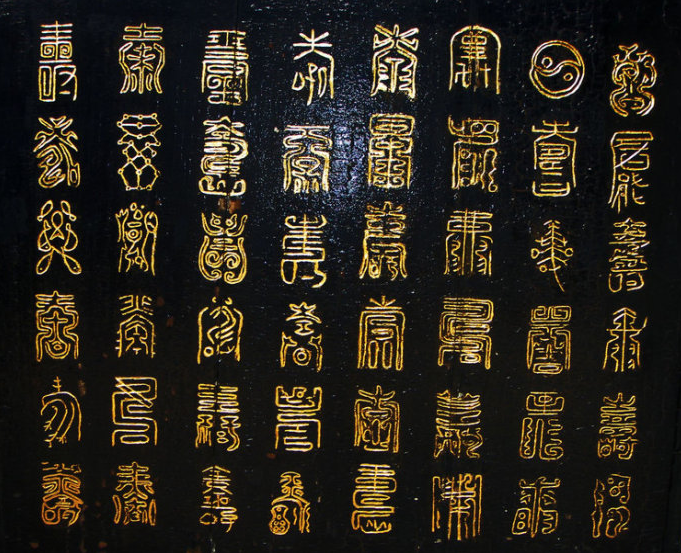 壽壽壽壽壽壽
壽壽壽壽壽
壽壽壽壽壽壽
壽壽壽壽壽壽
壽壽壽壽壽壽
壽壽壽壽壽壽
壽壽壽壽壽壽
壽壽壽壽壽壽